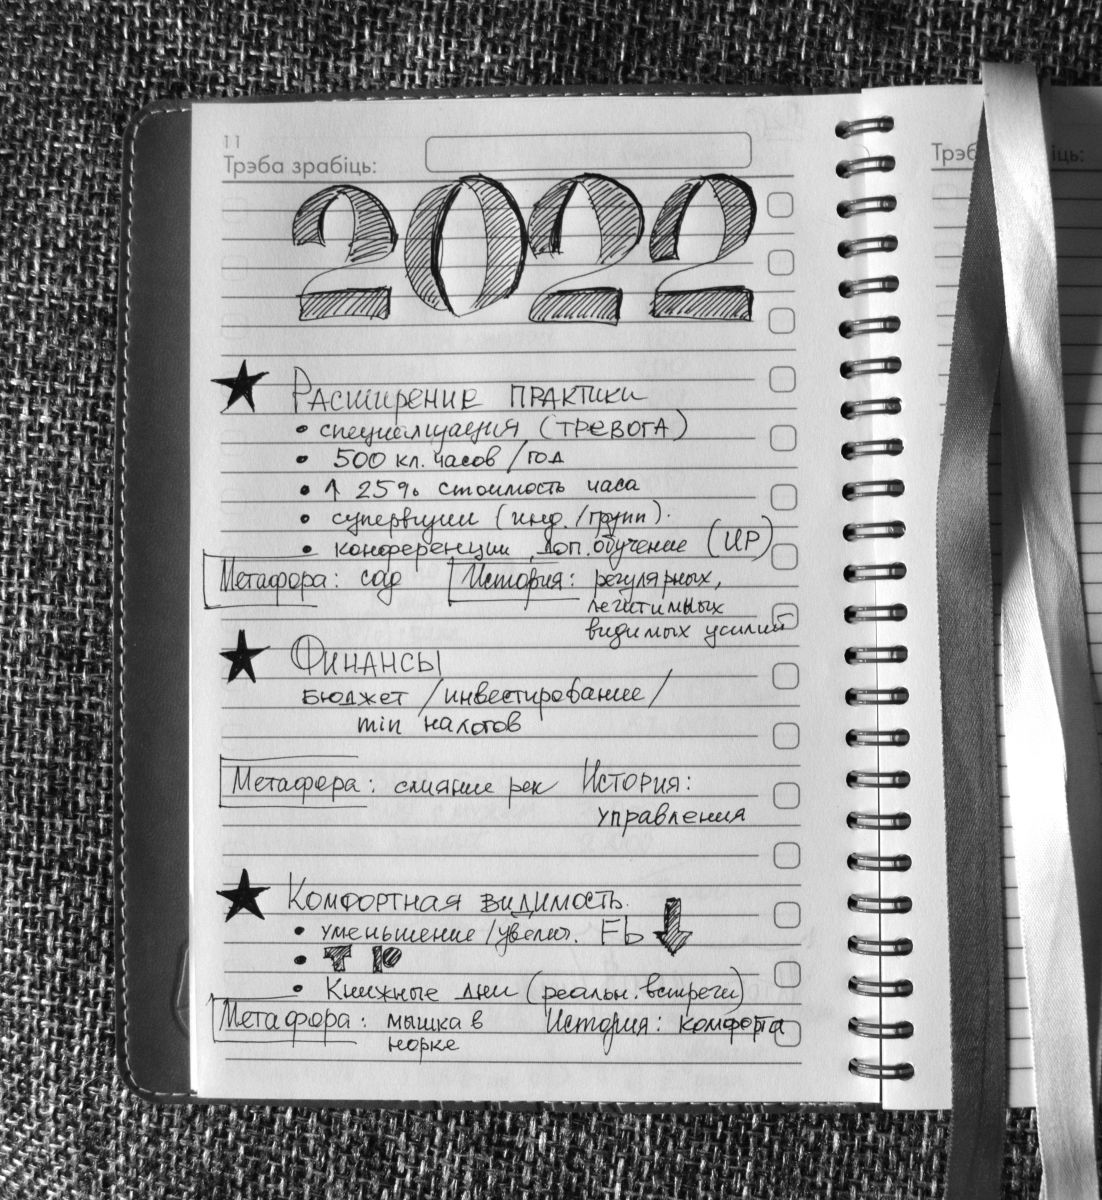 11
Трэба зрабіць:
2022
★ Расширение практики
• специализация (тревога)
• 500 кл. часов/год
• ↑ 25% стоимость часа
• супервизии (инд./групп).
• конференции, доп. обучение (ИР)
Метафора: сад История: регулярных,
легитимных
видимых усилий
★ Финансы
Бюджет/инвестирование/
min налогов
Метафера: слияние рек История:
управления
★ Комфортная видимость.
• уменьшение/увелич. Fb ↓
• Т Р
• Книжные дни (реальн. встречи)
Метафора: мышка в История: комфорта
норке
Трэб
іць: